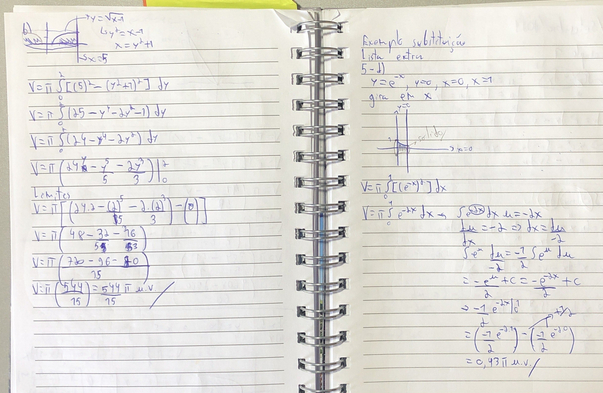 y=√x-1
↳ y²=x-1
x=y²+1
x=5
V=π∫₀² [(5)² - (y²+1)²] dy
V=π∫₀² (25-y⁴-2y²-1) dy
V=π∫₀² (24-y⁴-2y²) dy
V=π(24y - y⁵/5 - 2y³/3)|₀²
Limites
V=π[(24.2 - (2)⁵/5 - 2.(2)³/3) - (0)]
V=π(48 - 32/5 - 16/3)
V=π(720-96-80/15)
V=π(544/15) = 544/15 π u.v
Exemplo substituição
Lista extra
5-d)
y=e⁻ˣ, y=0, x=0, x=1
gira em x
x=0
V=π∫₀¹ [(e⁻ˣ)²] dx
V=π∫₀¹ e⁻²ˣ dx → ∫e⁻²ˣ dx u=-2x
du/dx = -2 => dx = du/-2
∫eᵘ du/-2 = -1/2 ∫eᵘ du
= -eᵘ/2 + c = -e⁻²ˣ/2 + c
→ -1/2 e⁻²ˣ|₀¹
+1/2
= (-1/2 e⁻²·¹) - (-1/2 e⁻²·⁰)
= 0,43π u.v